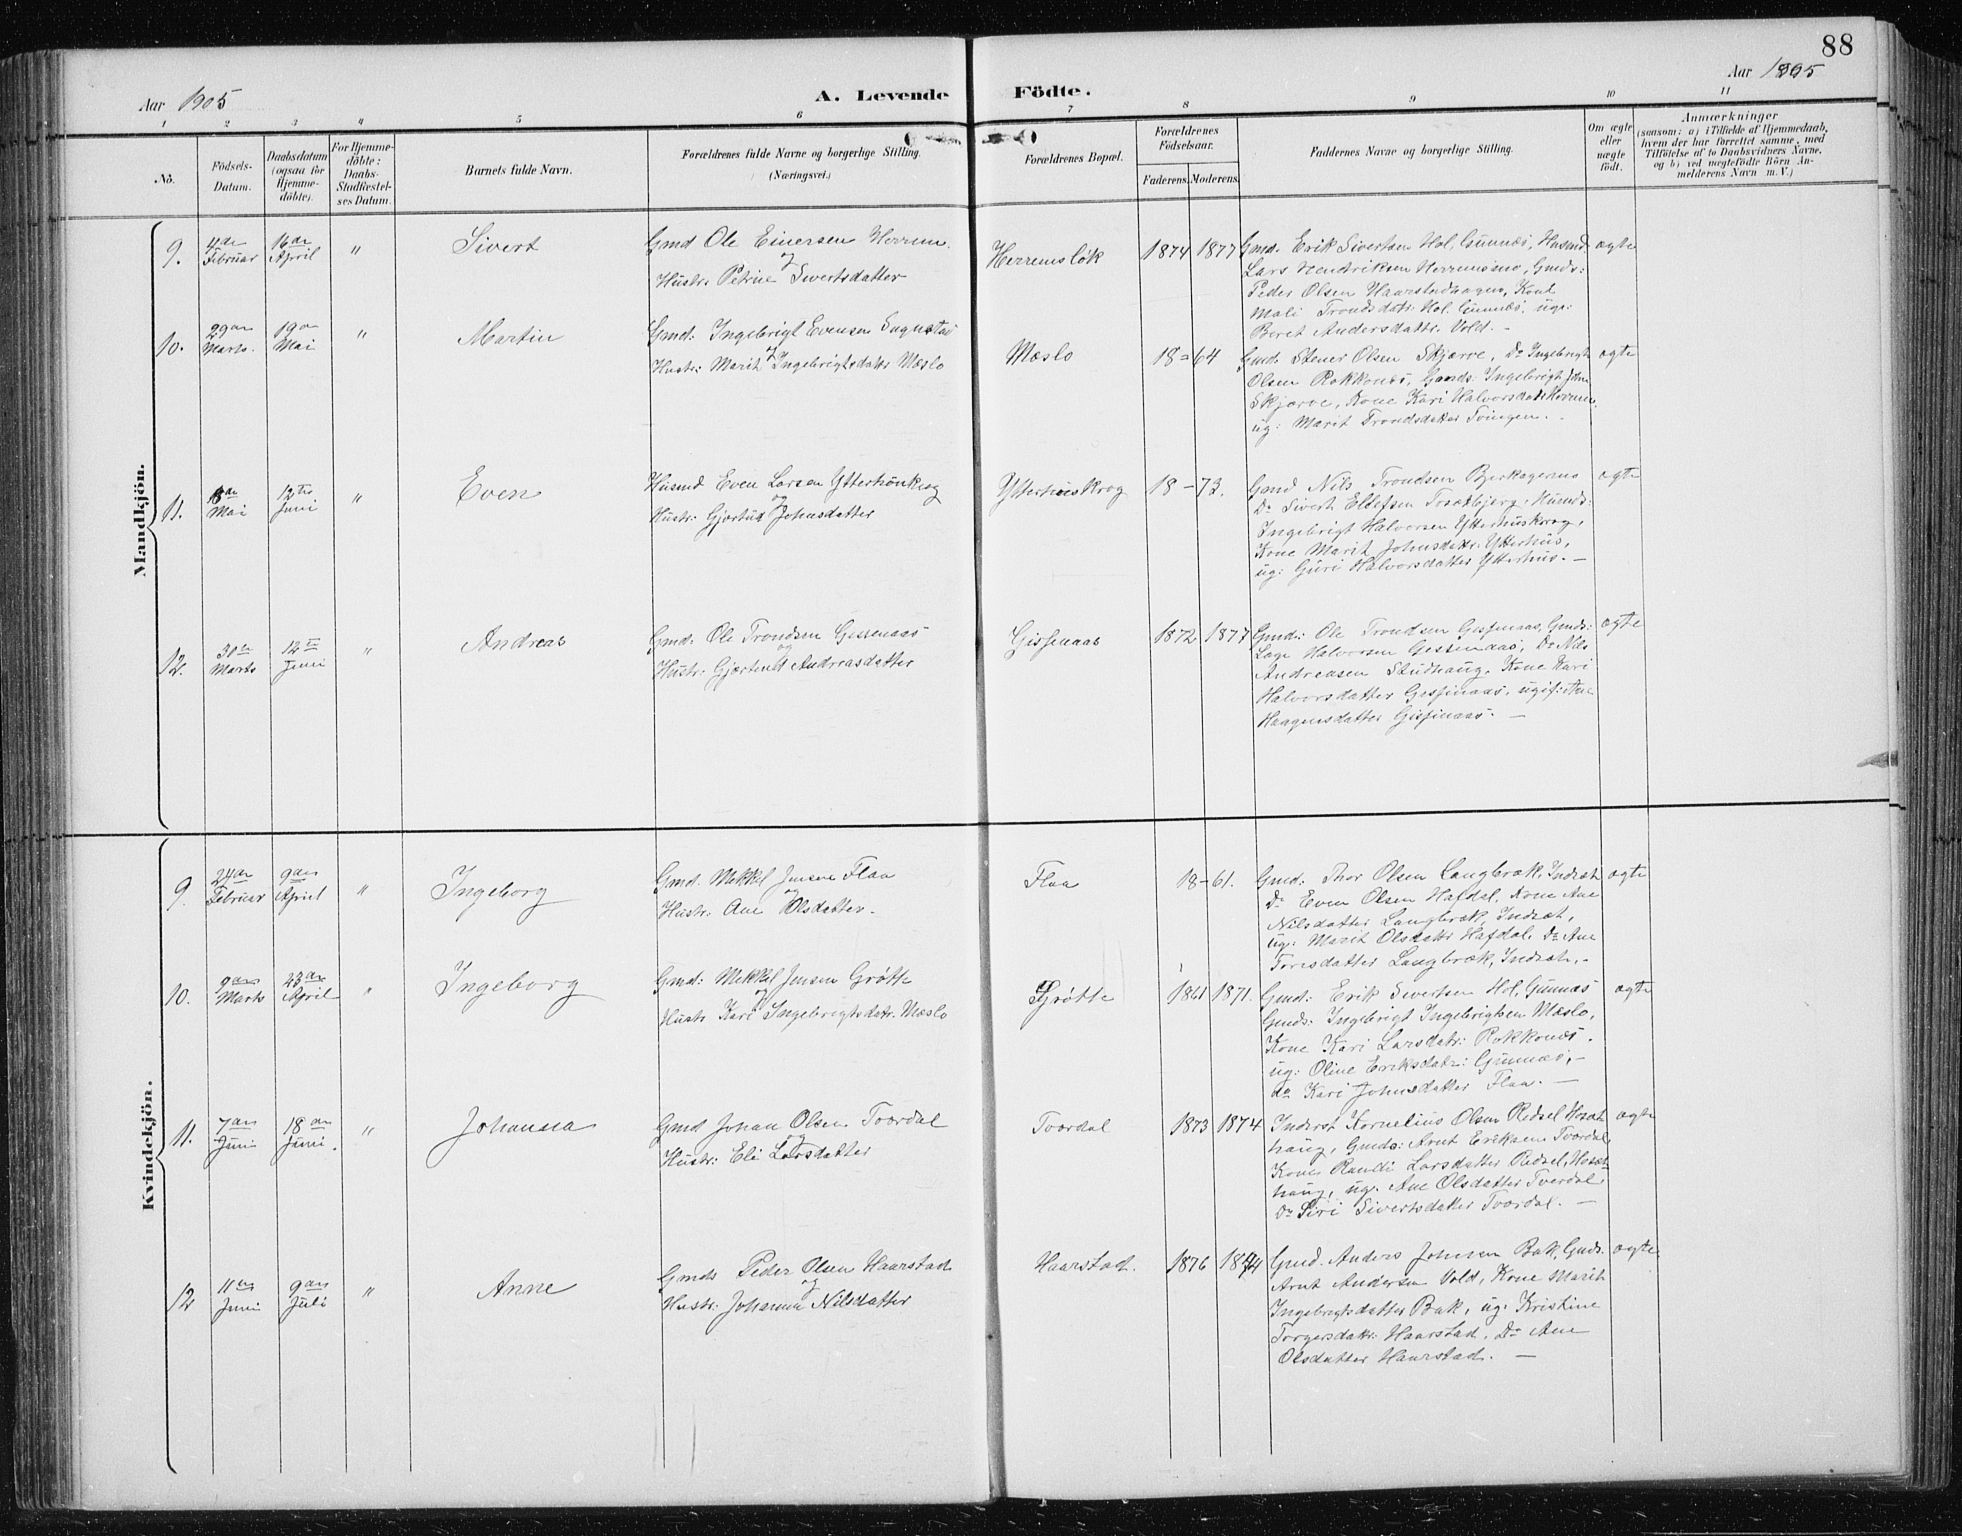 88
Aar 1905
A. Levende Födte.
Aar 1895
1 2 3 4 5 6 7 8 9 10 11
No.
Födsels-
Datum.
Daabsdatum
(ogsaa for
Hjemme-
döbte).
For Hjemme-
döbte:
Daabs-
Stadfæstel-
ses Datum.
Barnets fulde Navn.
Forældrenes fulde Navne og borgerlige Stilling.
(Næringsvei.)
Forældrenes Bopæl.
Forældrenes
Födselsaar.
Faderens. Moderens.
Faddernes Navne og borgerlige Stilling.
Om ægte
eller
uægte
födt.
Anmærkninger
(saasom: a) i Tilfælde af Hjemmedaab,
hvem der har forrettet samme, med
Tilföielse af to Daabsvidners Navne,
og b) ved uægtefödte Börn An-
melderens Navn m. V.)
Mandkjön.
9.
4de
Februar
16de
April
"
Sivert
Gmd Ole Einersen Herrem.
og
Hustr: Petrine Sivertsdatter
Herremsløk
1874 1877
Gmd. Erik Sivertsen Hol, Gunnæs, Husmd.
Lars Hendriksen Herremsmo, Gmds:
Peder Olsen Haarstadhagen, Kone
Mali Trondsdatr. Hol, Gunnæs, ug:
Beret Andersdatter Vold. -
ægte
10.
29de
Marts.
19de
Mai
"
Martin
Gmd: Ingebrigt Evensen Sugnstad
og
Hustr: Marit Ingebrigtsdatr Mæslo
Mæslo
18 = 64
Gmd: Stener Olsen Skjærve, Do Ingebrigt
Olsen Rokkones, Gmds: Ingebrigt John
Skjærve, Kone Kari Halvorsdatr Herrem,
ug: Marit Trondsdatter Svingen. -
ægte
11.
Mai
12te
Juni
"
Even
Husmd Even Larsen Ytterhuskrog
og
Hustr: Gjertrud Johnsdatter
Ytterhuskrog
18 - 73.
Gmd Nils Trondsen Bjerkagernæs
Do Sivert Ellefsen Trætbjerg, Humds:
Ingebrigt Halvorsen Ytterhuskrog,
Kone Marit Johnsdatr. Ytterhus,
ug: Guri Halvorsdatter Ytterhus. -
ægte
12.
30te
Marts
12te
Juni
"
Andreas
Gmd: Ole Trondsen Gissenaas
og
Hustr: Gjærtrud Andreasdatter
Gissinaas
1872 1877
Gmd: Ole Trondsen Gissinaas, Gmds:
Lage Halvorsen Gissenaas, Do Nils
Andreasen Studhaug, Kone Kari
Halvorsdatter Gissinaas, ugift: Ane
Haagensdatter Gissinaas. -
ægte
Kvindekjön.
9.
24de
Februar
9de
April
"
Ingeborg
Gmd. Mekkel Jensen Flaa
og
Hustr: Ane Olsdatter.
Flaa
18-61.
Gmd: Thor Olsen Langbræk, Indsæt
Do Even Olsen Hafdal, Kone Ane
Nilsdatter Langbræk, Indsæt,
ug: Marit Olsdatr Hafdal, Do Ane
Toresdatter Langbræk, Indsæt. -
ægte
10.
9de
Marts
23de
April
"
Ingeborg
Gmd: Mekkel Jensen Grøtte
og
Hustr Kari Ingebrigtsdatr. Mæslo
Grøtte
1861 1871.
Gmd: Erik Sivertsen Hol, Gunnæs
Gmds: Ingebrigt Ingebrigtsen Mæslo,
Kone Kari Larsdatr: Rokkones.
ug: Oline Eriksdatr: Gunnæs, -
do Kari Johnsdatter Flaa. -
ægte
11.
7de
Juni
18de
Juni.
"
Johanna
Gmd Johan Olsen Tværdal
og
Hustr: Eli Larsdatter
Tværdal
1873 1874
Inderst Kornelius Olsen Redsel, Hosæt
haug, Gmds: Arnt Eriksen Tværdal
Kone Randi Larsdatter Redsel, Hosæt-
haug, ug. Ane Olsdatter Tverdal
Do Siri Sivertsdatter Tværdal. -
ægte
12
11te
Juni
9de
Juli
"
Anne
Gmds Peder Olsen Haarstad
og
Hustr: Johanna Nilsdatter
Haarstad.
1876 1874
Gmd. Anders Johnsen Bak, Gmds.
Arnt Andersen Vold, Kone Marit
Ingebrigtsdatter Bak, ug: Kristine
Torgersdatr: Haarstad, Do Ane
Olsdatter Haarstad. -
ægte